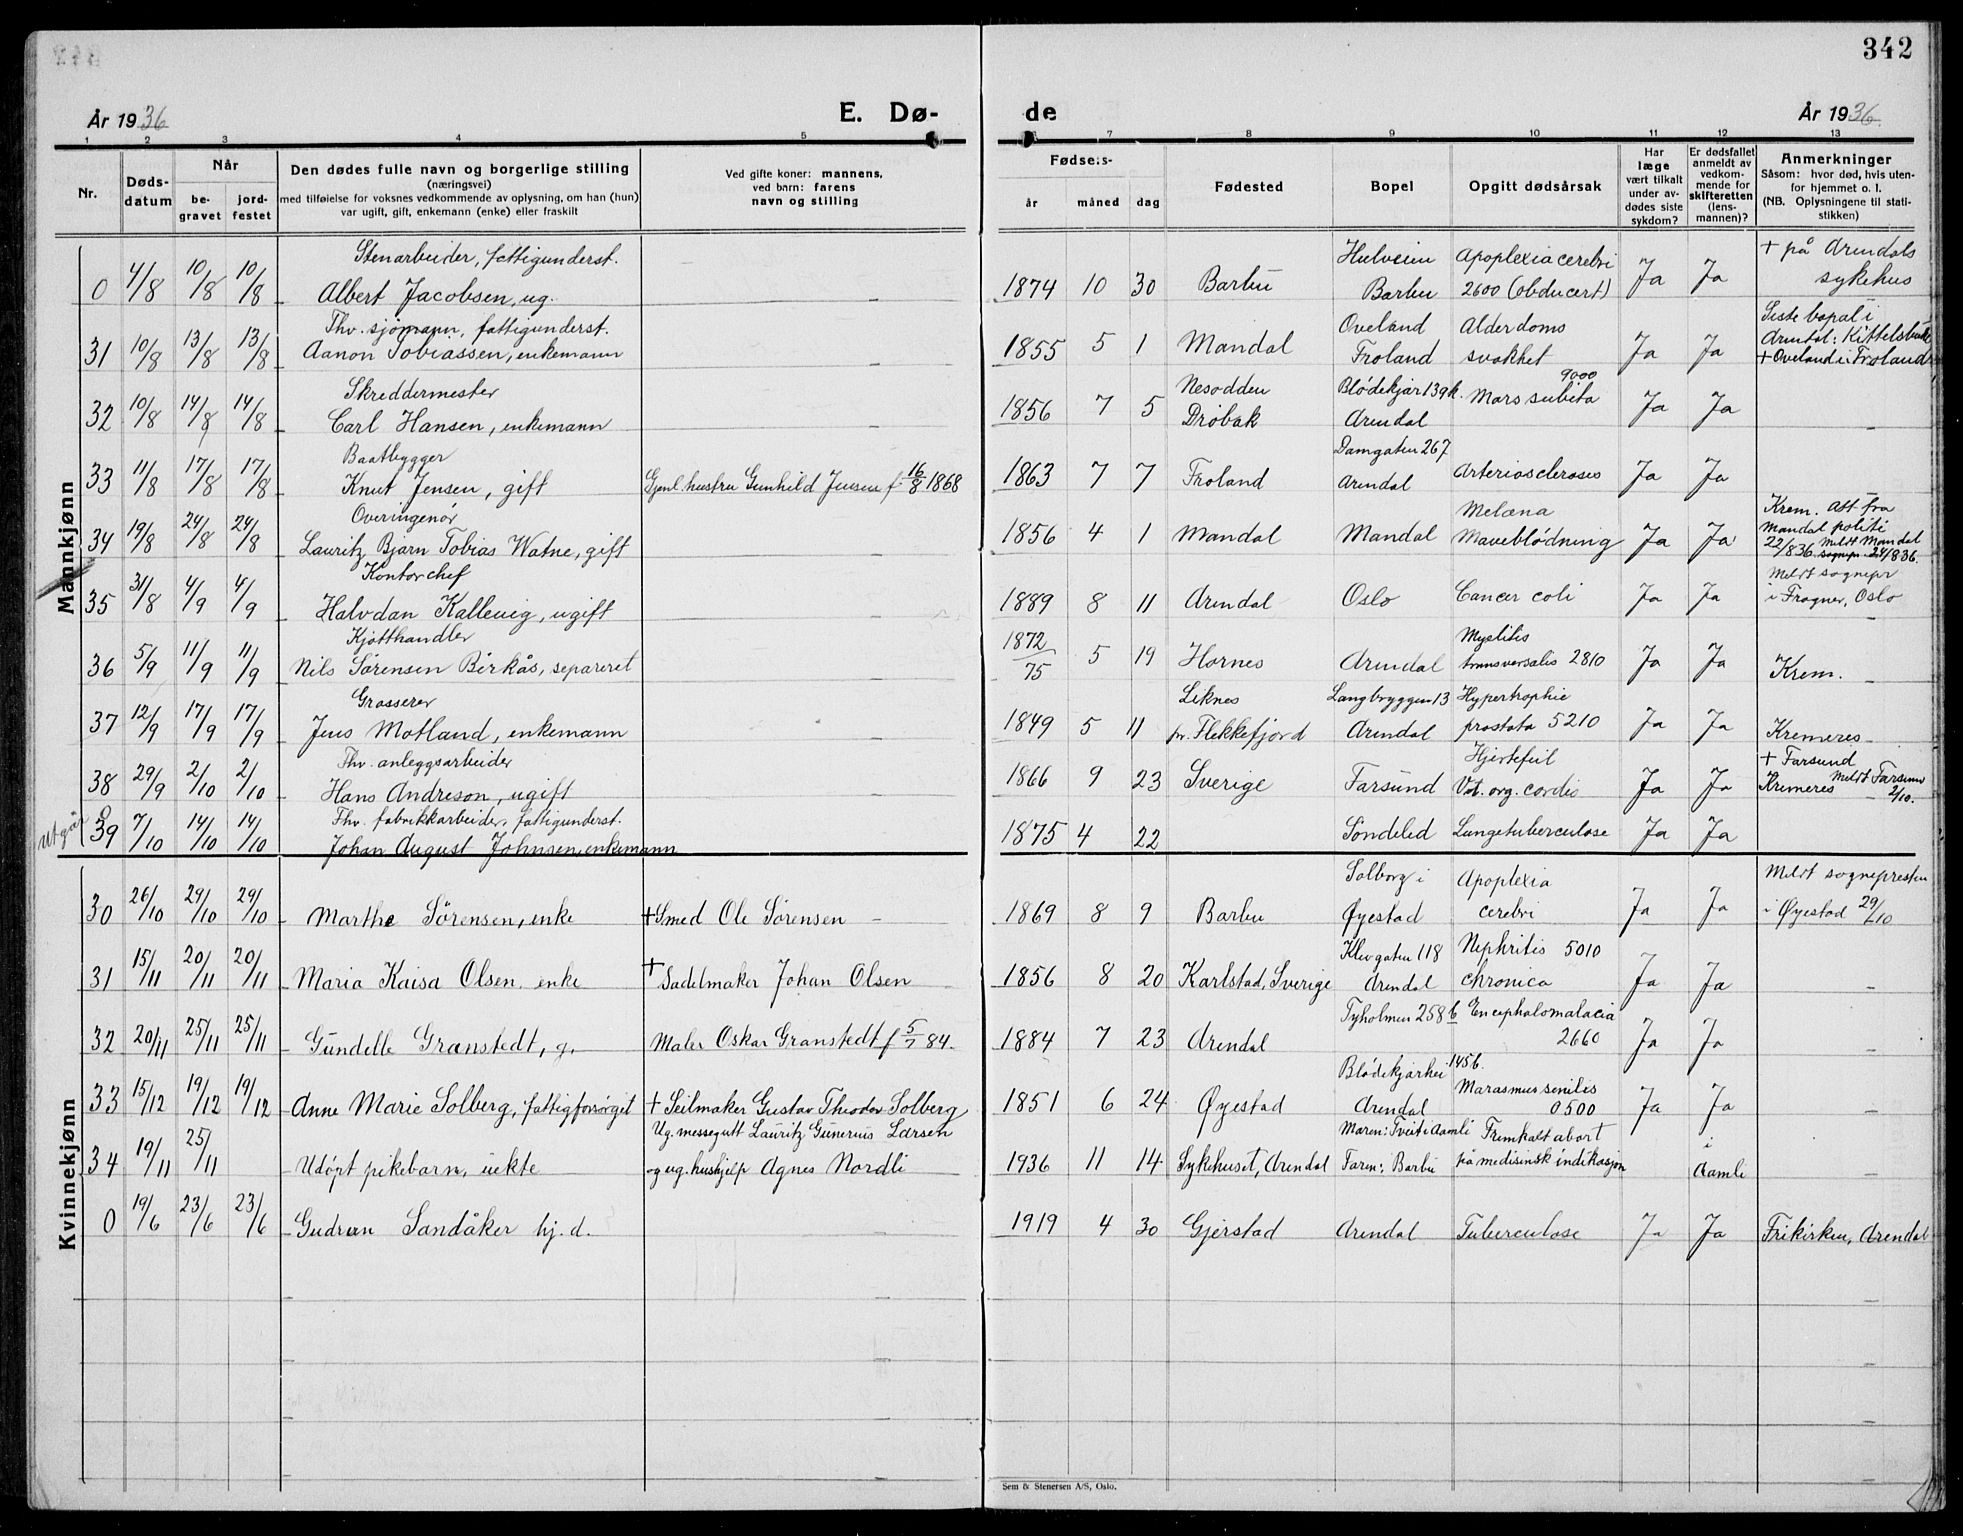 342
År 1936
E. Dø-
de
År 1936.
1 2 3 4 5 6 7 8 9 10 11 12 13
Nr.
Døds-
datum
Når
be-
gravet
jord-
festet
Den dødes fulle navn og borgerlige stilling
(næringsvei)
med tilføielse for voksnes vedkommende av oplysning, om han (hun)
var ugift, gift, enkemann (enke) eller fraskilt
Ved gifte koner: mannens,
ved barn: farens
navn og stilling
Fødsels-
år måned dag
Fødested
Bopel
Opgitt dødsårsak
Har
læge
vært tilkalt
under av-
dødes siste
sykdom?
Er dødsfallet
anmeldt av
vedkom-
mende for
skifteretten
(lens-
mannen)?
Anmerkninger
Såsom: hvor død, hvis uten-
for hjemmet o. l.
(NB. Oplysningene til stati-
stikken)
Mannkjønn
Stenarbeider, fattigunderst. Hulveien Apoplexia cerebri + på Arendals
0 4/8 10/8 10/8 Albert Jacobsen, ug. — 1874 10 30 Barbu Barbu 2600 (obducert) Ja Ja sykehus
Thv. sjømann, fattigunderst. Oveland Alderdoms Siste bopal i
31 10/8 13/8 13/8 Aanon Tobiassen, enkemann — 1855 5 1 Mandal Froland svakhet Ja Ja Arendal: Kittelsbukt
+ Oveland i Froland
Skreddermester Nesodden Blødekjær 139k. 9000
32 10/8 14/8 14/8 Carl Hansen, enkemann — 1856 7 5 Drøbak Arendal Mors subita Ja Ja —
Baatbygger Damgaten 267
33 11/8 17/8 17/8 Knut Jensen, gift Gjenl. hustru Gunhild Jensen f. 16/8 1868 1863 7 7 Froland Arendal Arteriosclerosis Ja Ja
Overingenør Melæna Krem. Att fra
34 19/8 24/8 24/8 Lauritz Bjørn Tobias Watne, gift — 1856 4 1 Mandal Mandal Maveblødning Ja Ja Mandal politi
22/8 36. Meldt Mandal
sognepr. 24/8 36.
Kontorchef Meldt sognepr
35 31/8 4/9 4/9 Halvdan Kallevig, ugift 1889 8 11 Arendal Oslo Cancer coli Ja Ja i Frogner, Oslo
Kjøtthandler 1872 Myelitis
36 5/9 11/9 11/9 Nils Sørensen Birkås, separeret — 75 5 19 Hornes Arendal transversalis 2810 Ja Ja Krem.
Grosserer Liknes Langbryggen 13 Hypertrophie
37 12/9 17/9 17/9 Jens Motland, enkemann — 1849 5 11 pr. Flekkefjord Arendal prostata 5210 Ja Ja Kremeres
Thv. anleggsarbeider Hjertefeil + Farsund
38 29/9 2/10 2/10 Hans Andreson, ugift — 1866 9 23 Sverige Farsund Vit. org. cordis Ja Ja Kremeres Meldt Farsund 2/10.
Thv. fabrikkarbeider, fattigunderst.
utgår 0 39 7/10 14/10 14/10 Johan August Johnsen, enkemann 1875 4 22 Søndeled Lungetuberculose Ja Ja
Kvinnekjønn
Solborg i Apoplexia Meldt sognepresten
30 26/10 29/10 29/10 Marthe Sørensen, enke + Smed Ole Sørensen — 1869 8 9 Barbu Øyestad cerebri Ja Ja i Øyestad 29/10
Klevgaten 118 Nephritis 5010
31 15/11 20/11 20/11 Maria Kaisa Olsen, enke + Sadelmaker Johan Olsen 1856 8 20 Karlstad, Sverige Arendal chronica Ja Ja —
Tyholmen 258 b Encephalomalacia
32 20/11 25/11 25/11 Gundelle Granstedt, g. Maler Oskar Granstedt f 5/7 84. 1884 7 23 Arendal 2660 Ja Ja —
Blødekjærhei 1456. Marasmus senilis
33 15/12 19/12 19/12 Anne Marie Solberg, fattigforsørget + Seilmaker Gustav Theodor Solberg 1851 6 24 Øyestad Arendal 0500 Ja Ja —
Ug. messegutt Lauritz Gunerius Larsen Moren: Tveit i Aamli Fremkalt abort i
34 19/11 25/11 Udøpt pikebarn, uekte og ug. hushjelp Agnes Nordli 1936 11 14 Sykehuset, Arendal Faren: Barbu på medisinsk indikasjon Aamli —
0 19/6 23/6 23/6 Gudrun Sandåker hj. d. — 1919 4 30 Gjerstad Arendal Tuberculose Ja Ja Frikirken, Arendal
Sem & Stenersen A/S, Oslo.